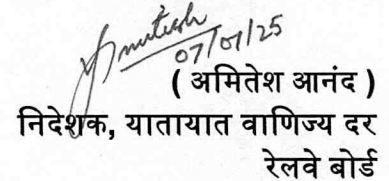 Amitesh
07/07/25
( अमितेश आनंद )
निदेशक, यातायात वाणिज्य दर
रेलवे बोर्ड